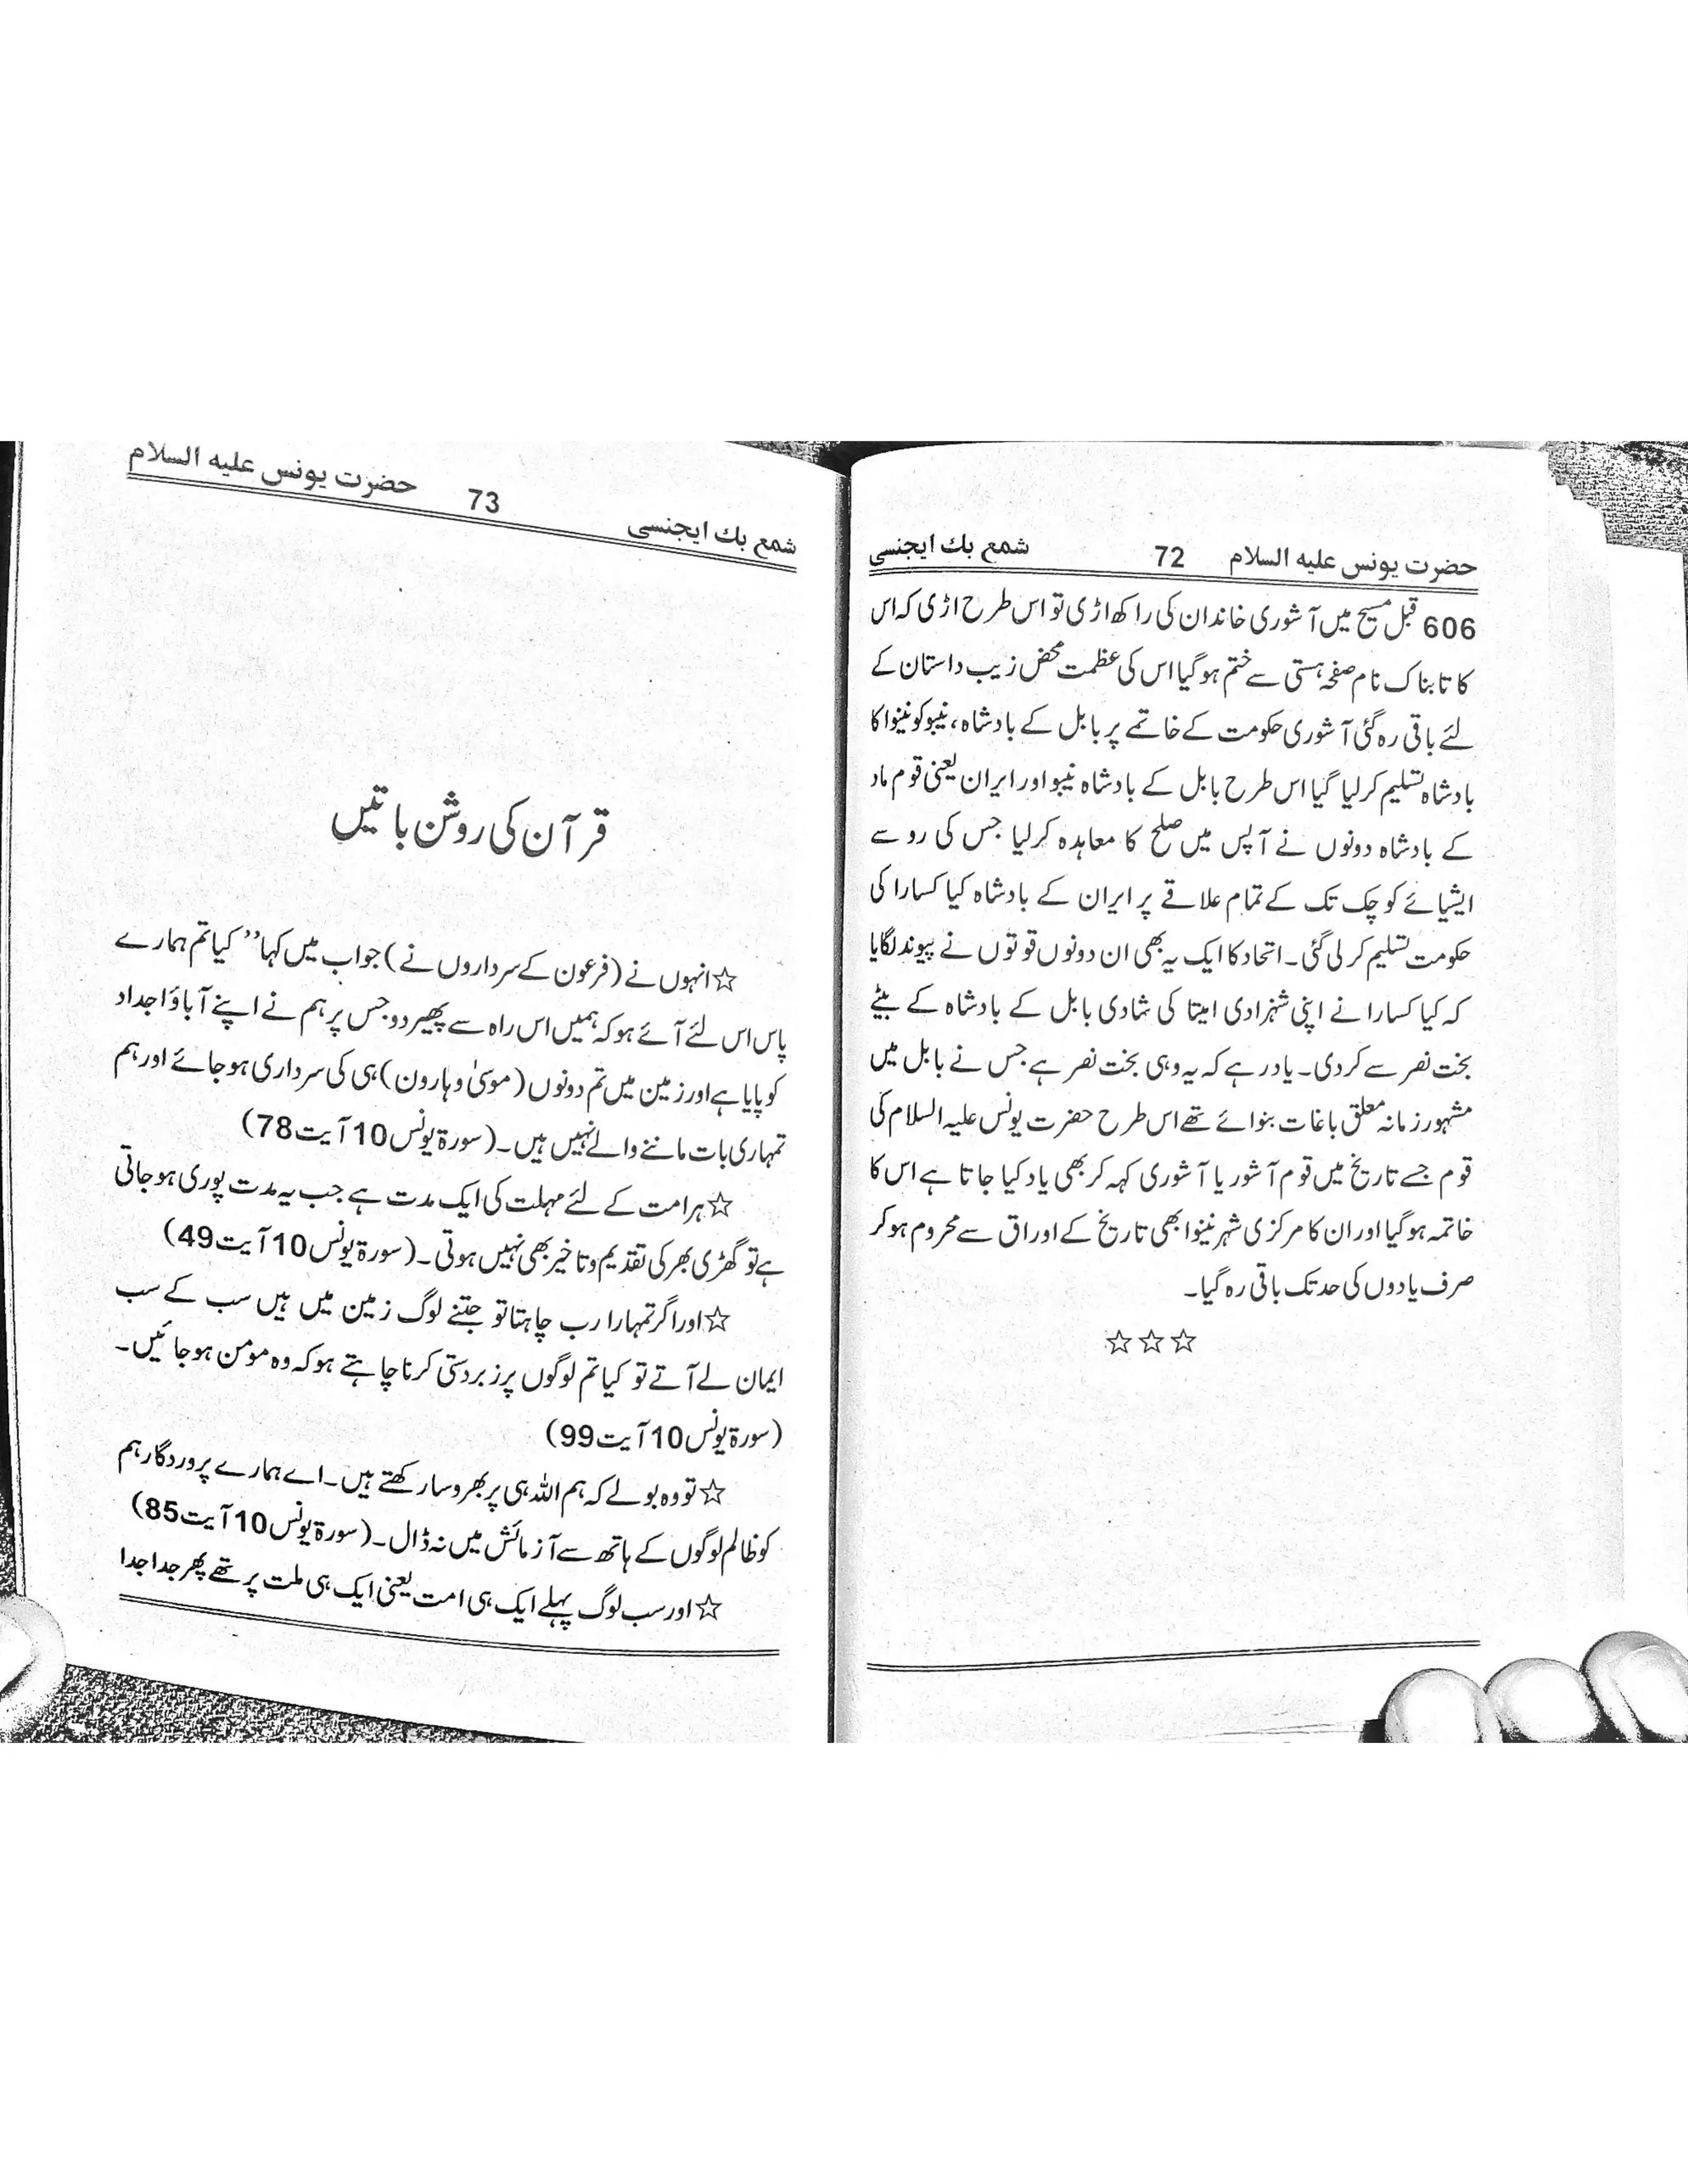 حضرت یونس علیہ السلام 72 شمع بک ایجنسی
606 قبل مسیح میں آشوری خاندان کی راکھ اڑی تو اس طرح اڑی کہ اس
کا تابناک نام صفحہ ہستی سے ختم ہوگیا اس کی عظمت محض زیب داستان کے
لئے باقی رہ گئی آشوری حکومت کے خاتمے پر بابل کے بادشاہ، نیبو کو نینوا کا
بادشاہ تسلیم کرلیا گیا اس طرح بابل کے بادشاہ نیبو اور ایران یعنی قوم ماد
کے بادشاہ دونوں نے آپس میں صلح کا معاہدہ کرلیا جس کی رو سے
ایشیائے کوچک تک کے تمام علاقے پر ایران کے بادشاہ کیا کسارا کی
حکومت تسلیم کر لی گئی۔ اتحاد کا ایک یہ بھی ان دونوں قوتوں نے پیوند لگایا
کہ کیا کسارا نے اپنی شہزادی امیتا کی شادی بابل کے بادشاہ کے بیٹے
بخت نصر سے کردی۔ یاد رہے کہ یہ وہی بخت نصر ہے جس نے بابل میں
مشہور زمانہ معلق باغات بنوائے تھے اس طرح حضرت یونس علیہ السلام کی
قوم جسے تاریخ میں قوم آشور یا آشوری کہہ کر بھی یاد کیا جاتا ہے اس کا
خاتمہ ہوگیا اور ان کا مرکزی شہر نینوا بھی تاریخ کے اوراق سے محروم ہوکر
صرف یادوں کی حد تک باقی رہ گیا۔
☆☆☆
شمع بک ایجنسی 73 حضرت یونس علیہ السلام
قرآن کی روشن باتیں
☆ انہوں نے (فرعون کے سرداروں نے) جواب میں کہا ’’کیا تم ہمارے
پاس اس لئے آئے ہو کہ ہمیں اس راہ سے پھیر دو جس پر ہم نے اپنے آباؤ اجداد
کو پایا ہے اور زمین میں تم دونوں (موسیٰ و ہارون) ہی کی سرداری ہو جائے اور ہم
تمہاری بات ماننے والے نہیں ہیں۔ (سورۃ یونس 10 آیت 78)
☆ ہر امت کے لئے مہلت کی ایک مدت ہے جب یہ مدت پوری ہو جاتی
ہے تو گھڑی بھر کی تقدیم و تاخیر بھی نہیں ہوتی۔ (سورۃ یونس 10 آیت 49)
☆ اور اگر تمہارا رب چاہتا تو جتنے لوگ زمین میں ہیں سب کے سب
ایمان لے آتے تو کیا تم لوگوں پر زبردستی کرنا چاہتے ہو کہ وہ مومن ہو جائیں۔
(سورۃ یونس 10 آیت 99)
☆ تو وہ بولے کہ ہم اللہ ہی پر بھروسا رکھتے ہیں۔ اے ہمارے پروردگار ہم
کو ظالم لوگوں کے ہاتھ سے آزمائش میں نہ ڈال۔ (سورۃ یونس 10 آیت 85)
☆ اور سب لوگ پہلے ایک ہی امت یعنی ایک ہی ملت پر تھے پھر جدا جدا